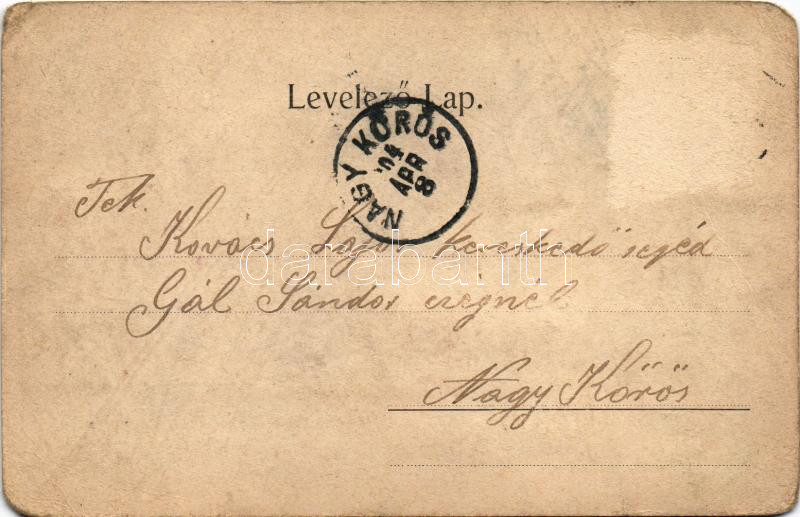 Levelező Lap.
NAGY KŐRÖS
'04
APR
8
Tek.
Kovács Lajos kereskedő segéd
Gál Sándor czégnél
Nagy Kőrös
darabanth